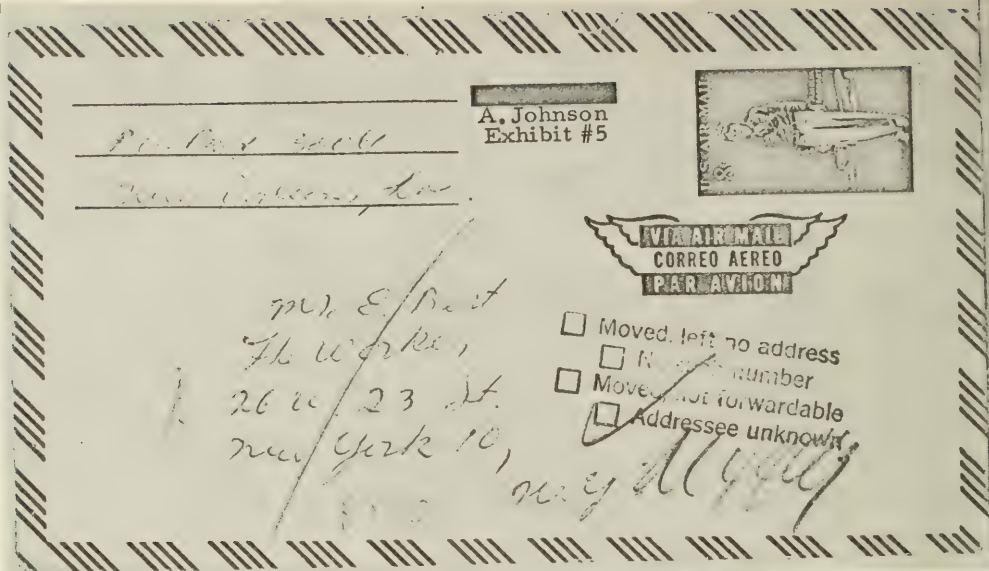 A. Johnson
Exhibit #5
U.S. AIR MAIL
8¢
P.O. Box
New Orleans, La.
VIA AIR MAIL
CORREO AEREO
PAR AVION
Mr. E. Bert
The Worker,
26 W. 23 St.
New York 10,
N.Y.
Moved, left no address
No such number
Moved, not forwardable
Addressee unknown